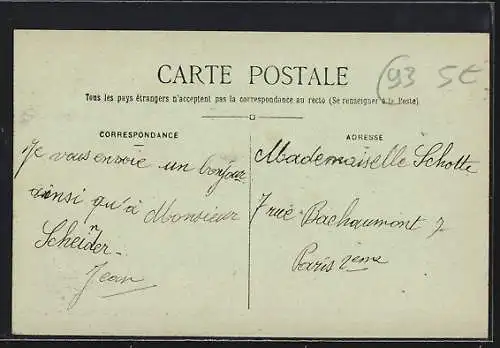 93 5€
CARTE POSTALE
Tous les pays étrangers n'acceptent pas la correspondance au recto (Se renseigner à la Poste)
CORRESPONDANCE
Je vous envoie un bonjour
ainsi qu'à Monsieur
Scheinder-
Jean
ADRESSE
Mademaiselle Schotte
7 rue Bachaumont 7
Paris 2eme